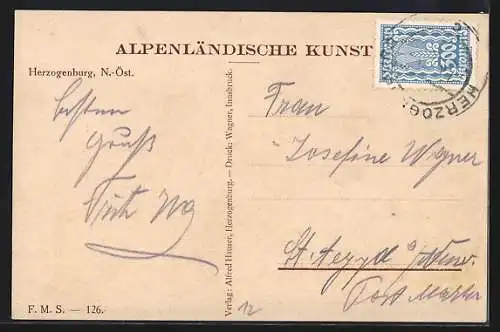 ALPENLÄNDISCHE KUNST
300
HERZOG
Herzogenburg, N.-Öst.
Besten
Gruß
Fritz
Verlag: Alfred Heuser, Herzogenburg. — Druck: Wagner, Innsbruck.
Frau
Josefine Wagner
St. Aegyd a/
Post
F. M. S. — 126.
12